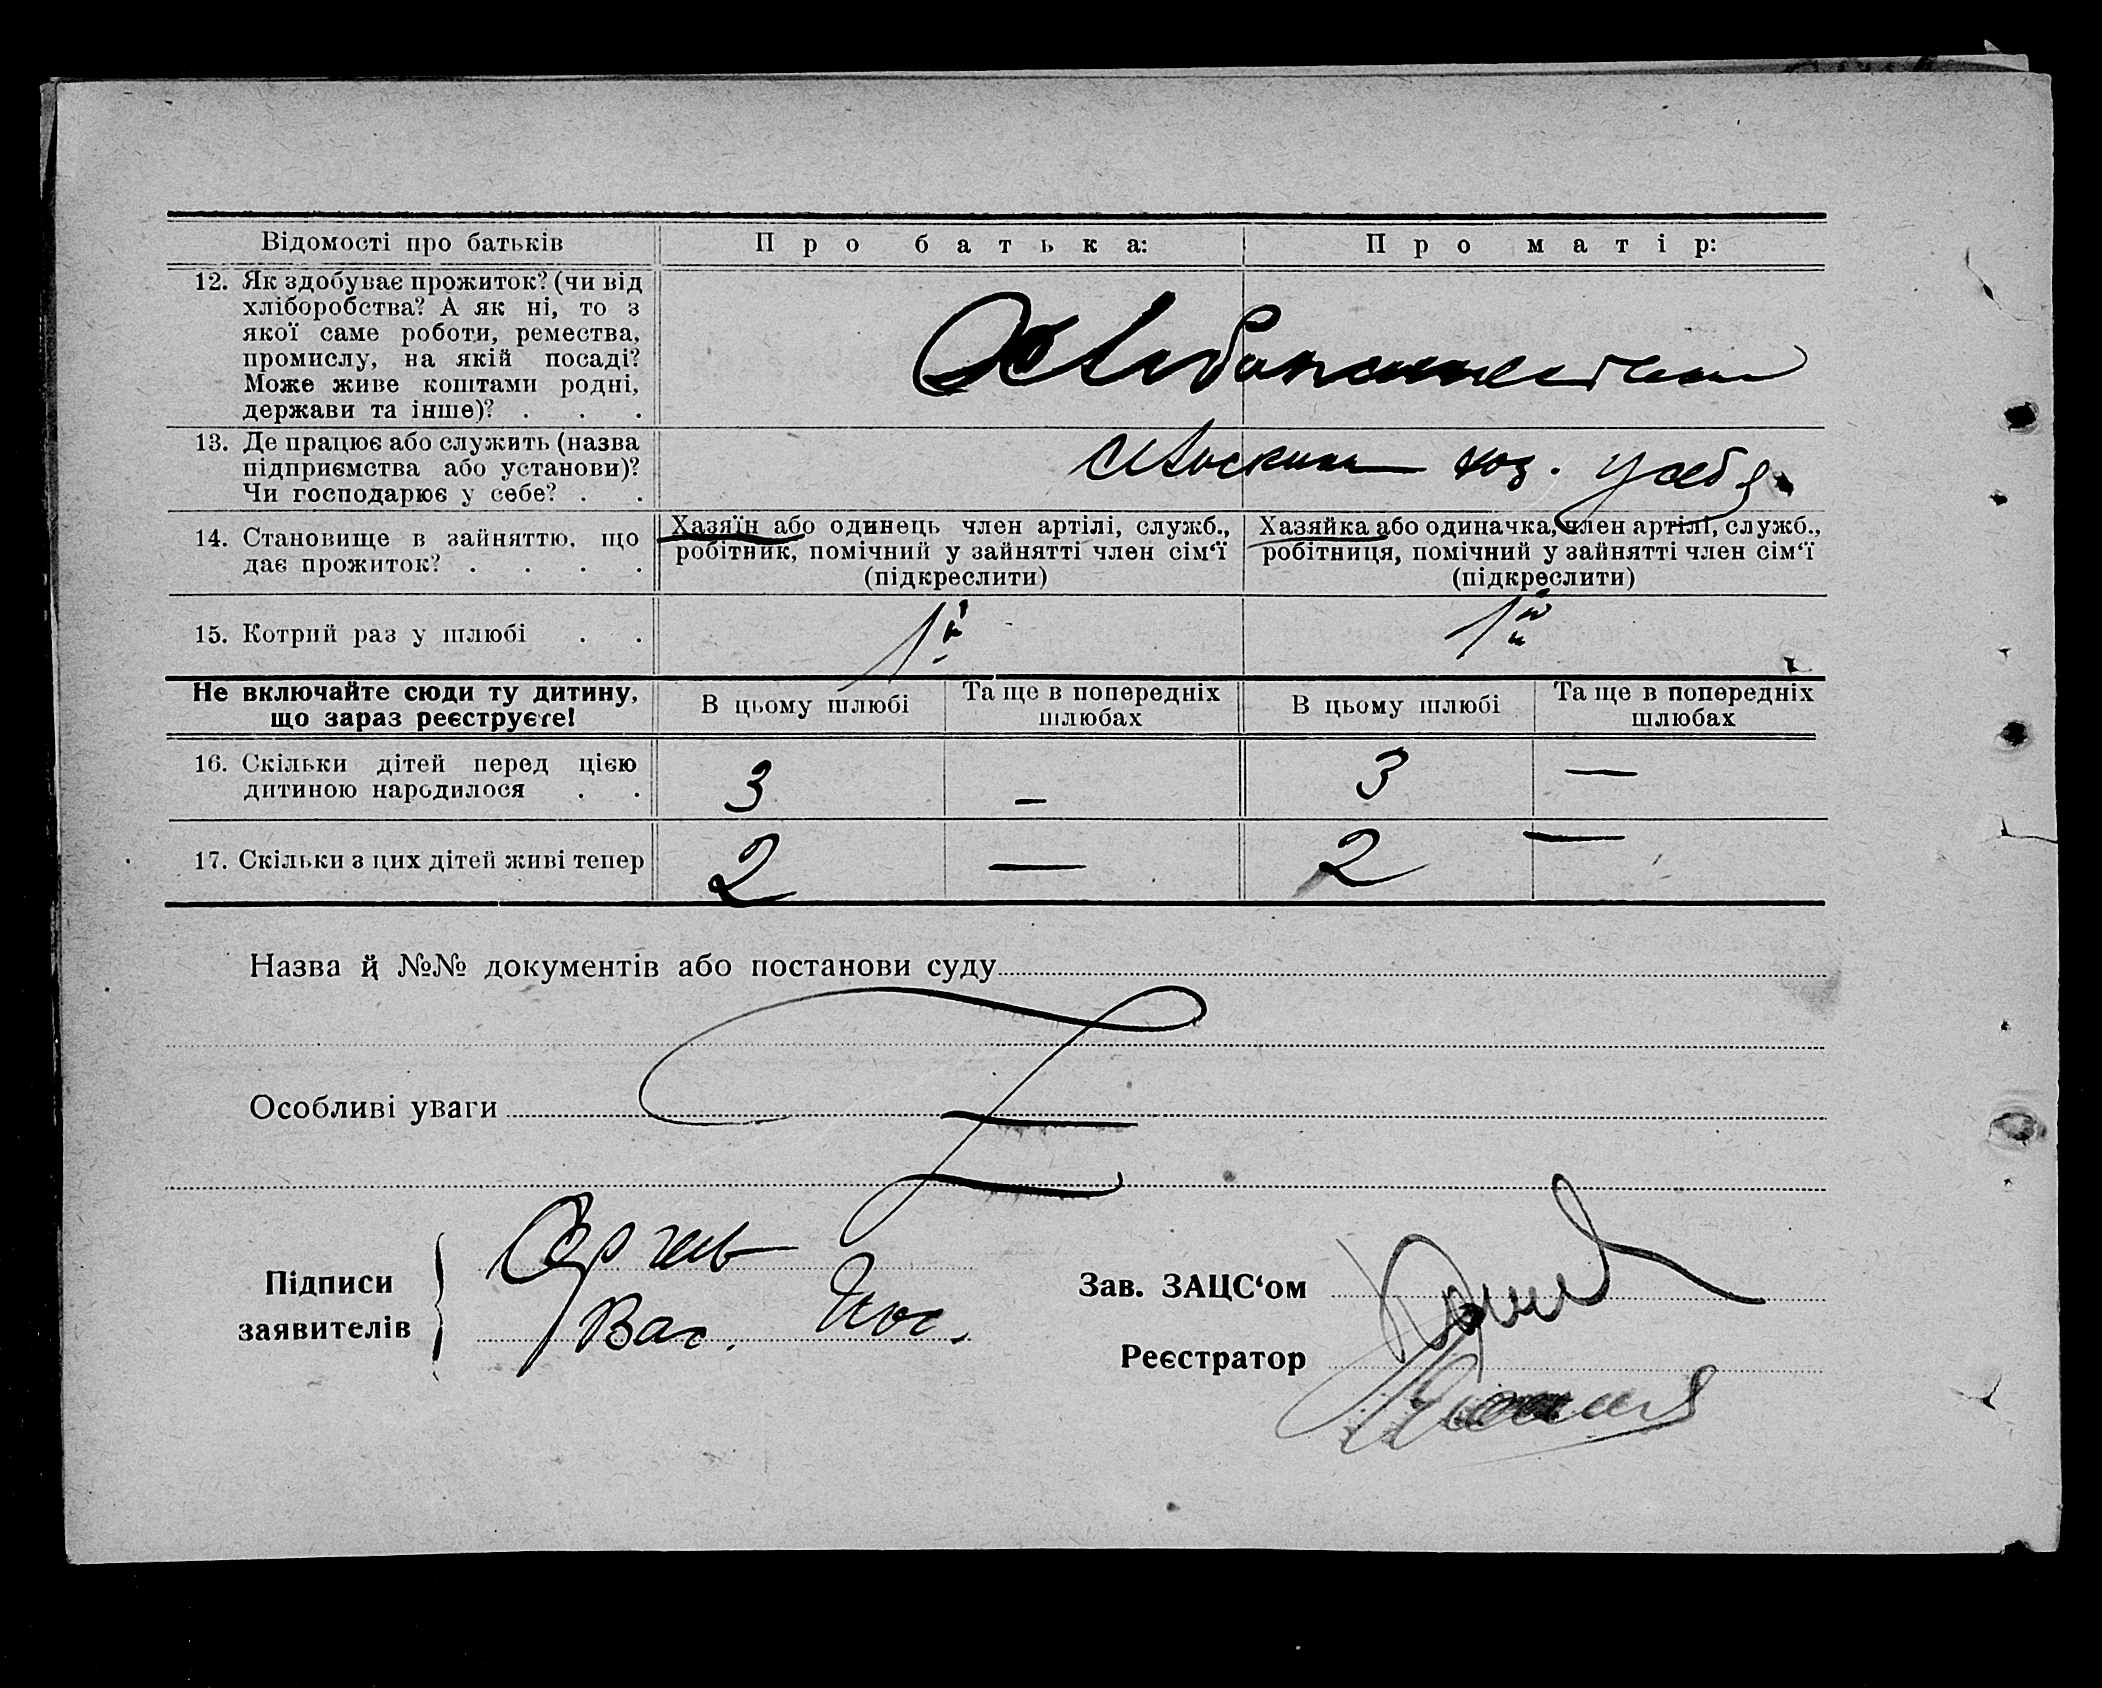 Відомості про батьків
Про батька:
Про матір:
12. Як здобуває прожиток? (чи від
хліборобства? А як ні, то з
якої саме роботи, ремества,
промислу, на якій посаді?
Може живе коштами родні,
держави та інше)? . . .
13. Де працює або служить (назва
підприємства або установи)?
Чи господарює у себе? . .
хоз. у себя
14. Становище в зайняттю, що
дає прожиток? . . . .
Хазяїн або одинець член артілі, служб.,
робітник, помічний у зайнятті член сім‘ї
(підкреслити)
Хазяйка або одиначка, член артілі, служб.,
робітниця, помічний у зайнятті член сім‘ї
(підкреслити)
15. Котрий раз у шлюбі . .
1й
1й
Не включайте сюди ту дитину,
що зараз реєструєте!
В цьому шлюбі
Та ще в попередніх
шлюбах
В цьому шлюбі
Та ще в попередніх
шлюбах
16. Скільки дітей перед цією
дитиною народилося . .
3
—
3
—
17. Скільки з цих дітей живі тепер
2
—
2
—
Назва й №№ документів або постанови суду
Особливі уваги
Підписи
заявителів
Вас.
Зав. ЗАЦС‘ом
Реєстратор